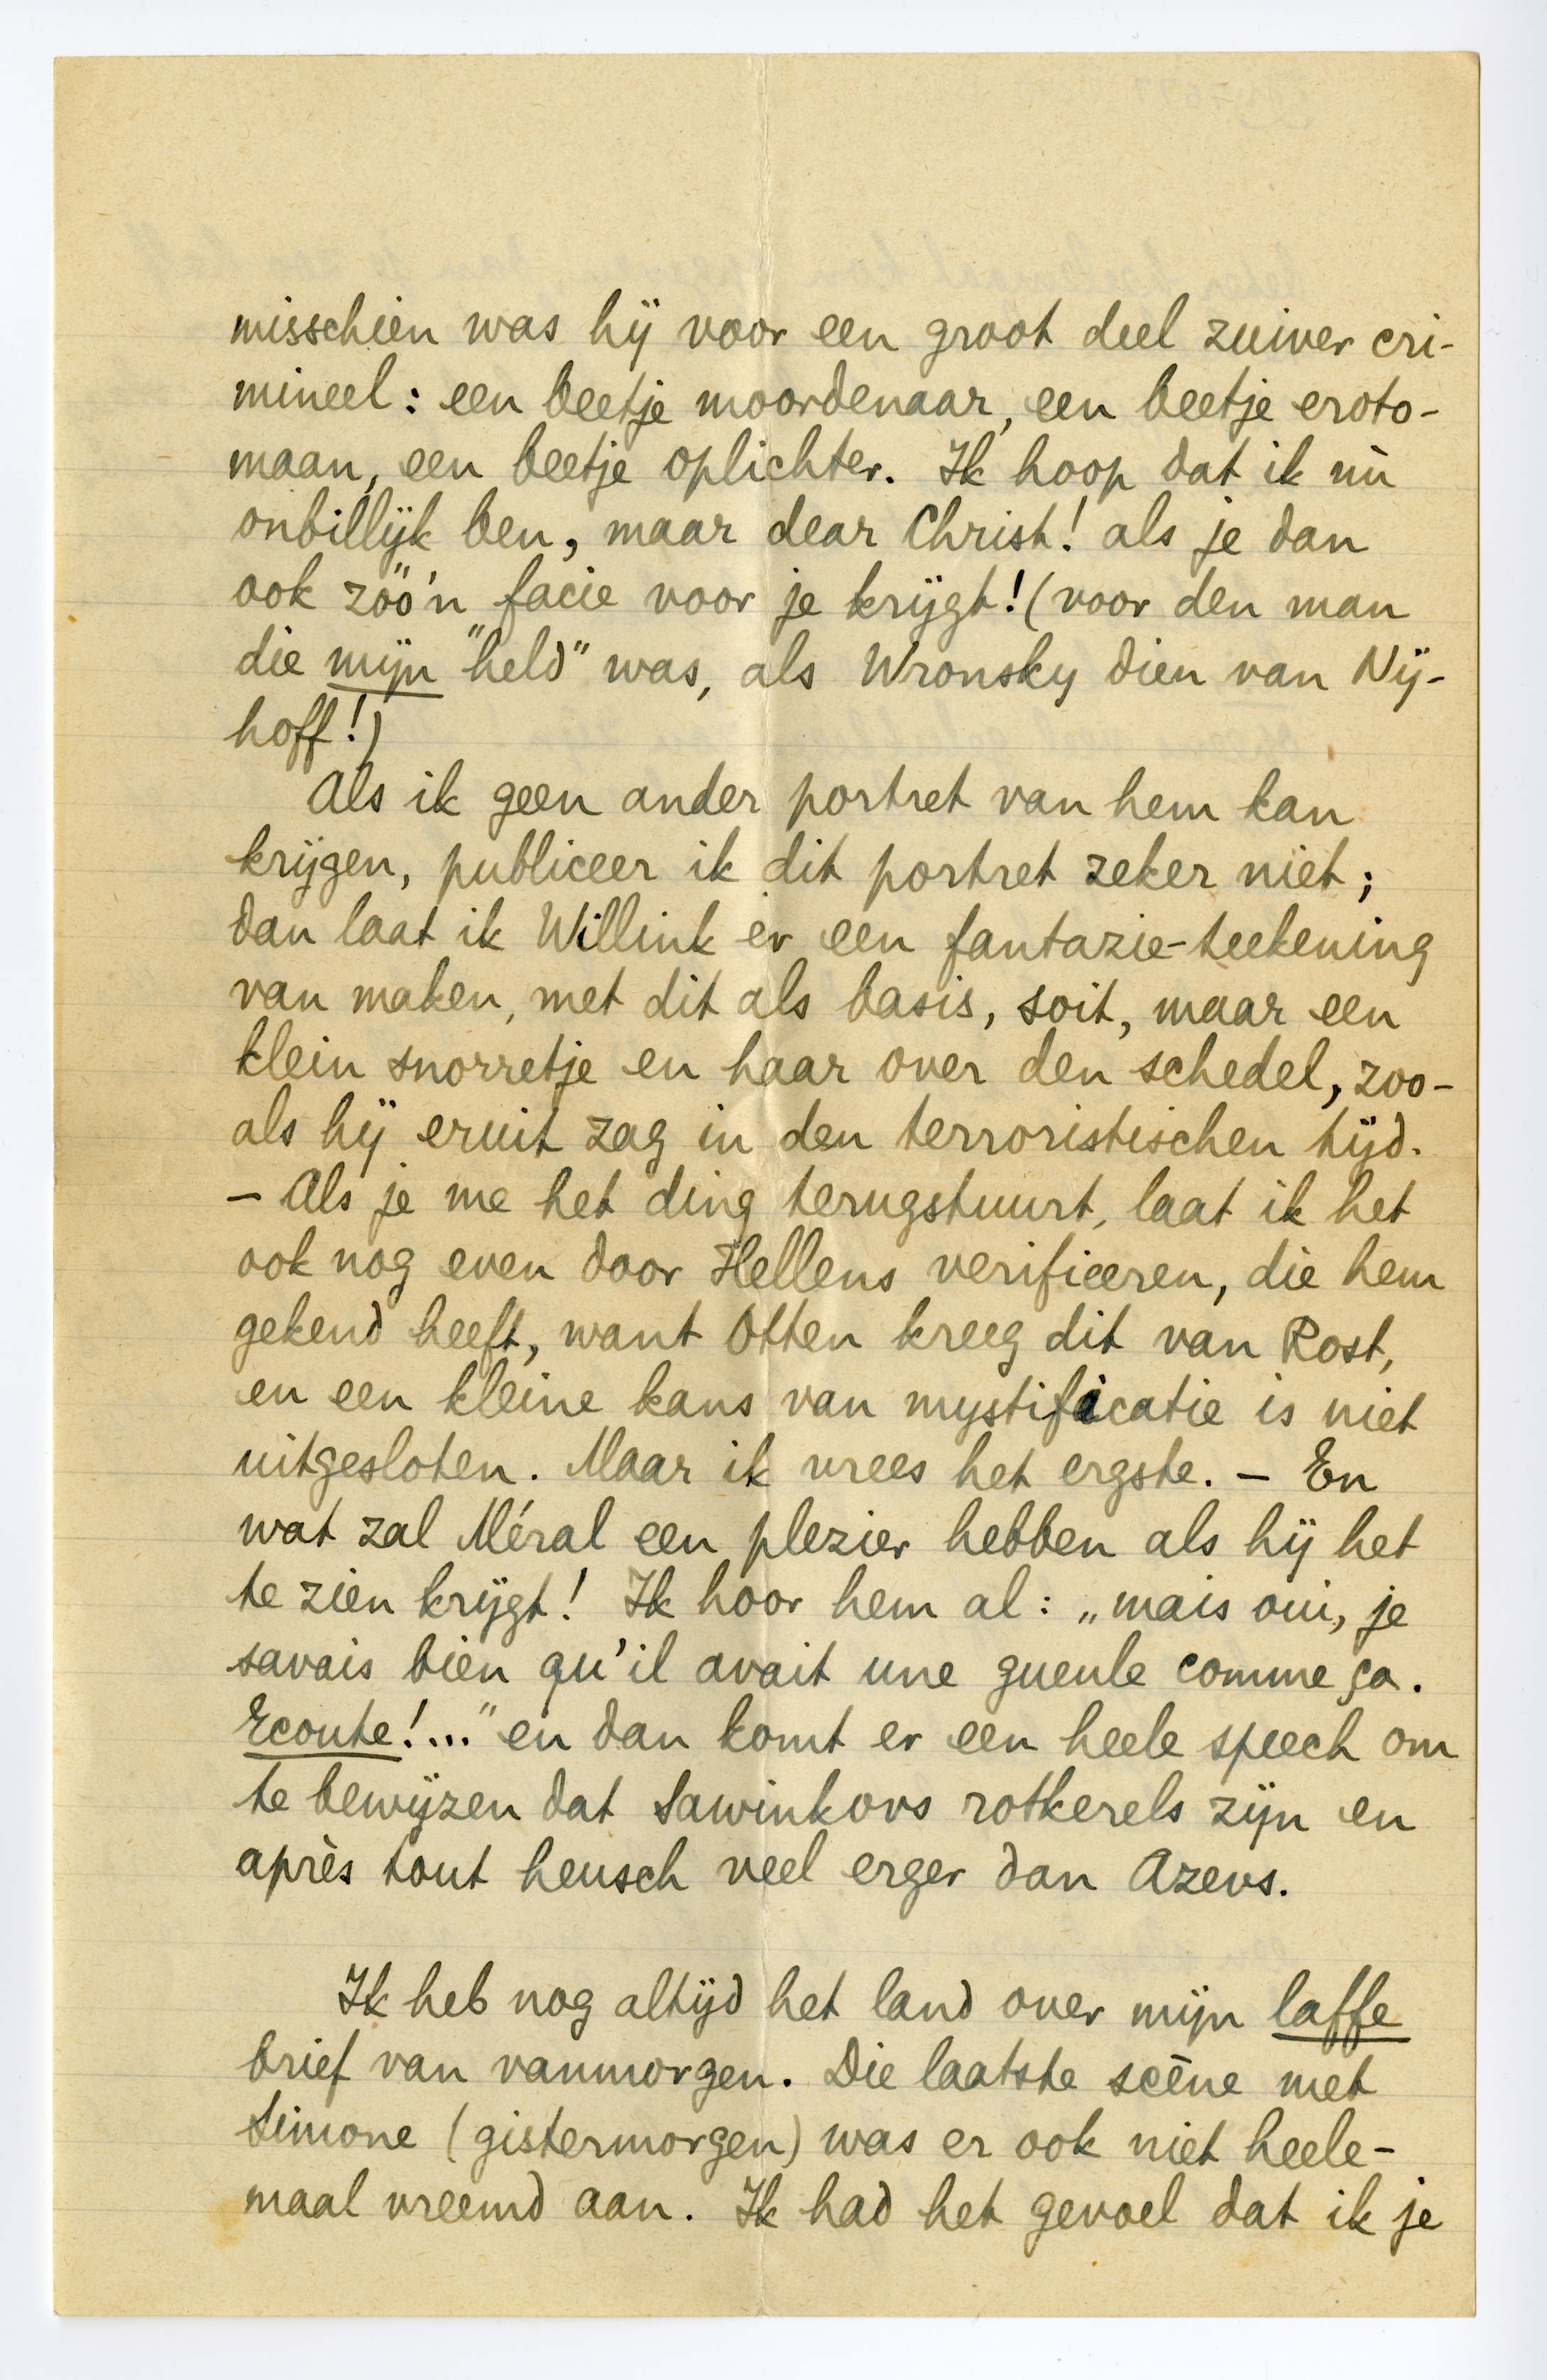 misschien was hij voor een groot deel zuiver cri-
mineel: een beetje moordenaar, een beetje eroto-
maan, een beetje oplichter. Ik hoop dat ik nù
onbillijk ben, maar dear Christ! als je dan
ook zóó'n facie voor je krijgt! (voor den man
die mijn "held" was, als Wronsky dien van Nij-
hoff!)
Als ik geen ander portret van hem kan
krijgen, publiceer ik dit portret zeker niet;
dan laat ik Willink er een fantazie-teekening
van maken, met dit als basis, soit, maar een
klein snorretje en haar over den schedel, zoo-
als hij eruit zag in den terroristischen tijd.
– Als je me het ding terugstuurt, laat ik het
ook nog even door Hellens verifieeren, die hem
gekend heeft, want Otten kreeg dit van Rost,
en een kleine kans van mystificatie is niet
uitgesloten. Maar ik vrees het ergste. – En
wat zal Méral een plezier hebben als hij het
te zien krijgt! Ik hoor hem al: „mais oui, je
savais bien qu'il avait une gueule comme ça.
Ecoute!..." en dan komt er een heele speech om
te bewijzen dat Sawinkovs rotkerels zijn en
après tout heusch veel erger dan Azevs.
Ik heb nog altijd het land over mijn laffe
brief van vanmorgen. Die laatste scène met
Simone (gistermorgen) was er ook niet heele-
maal vreemd aan. Ik had het gevoel dat ik je